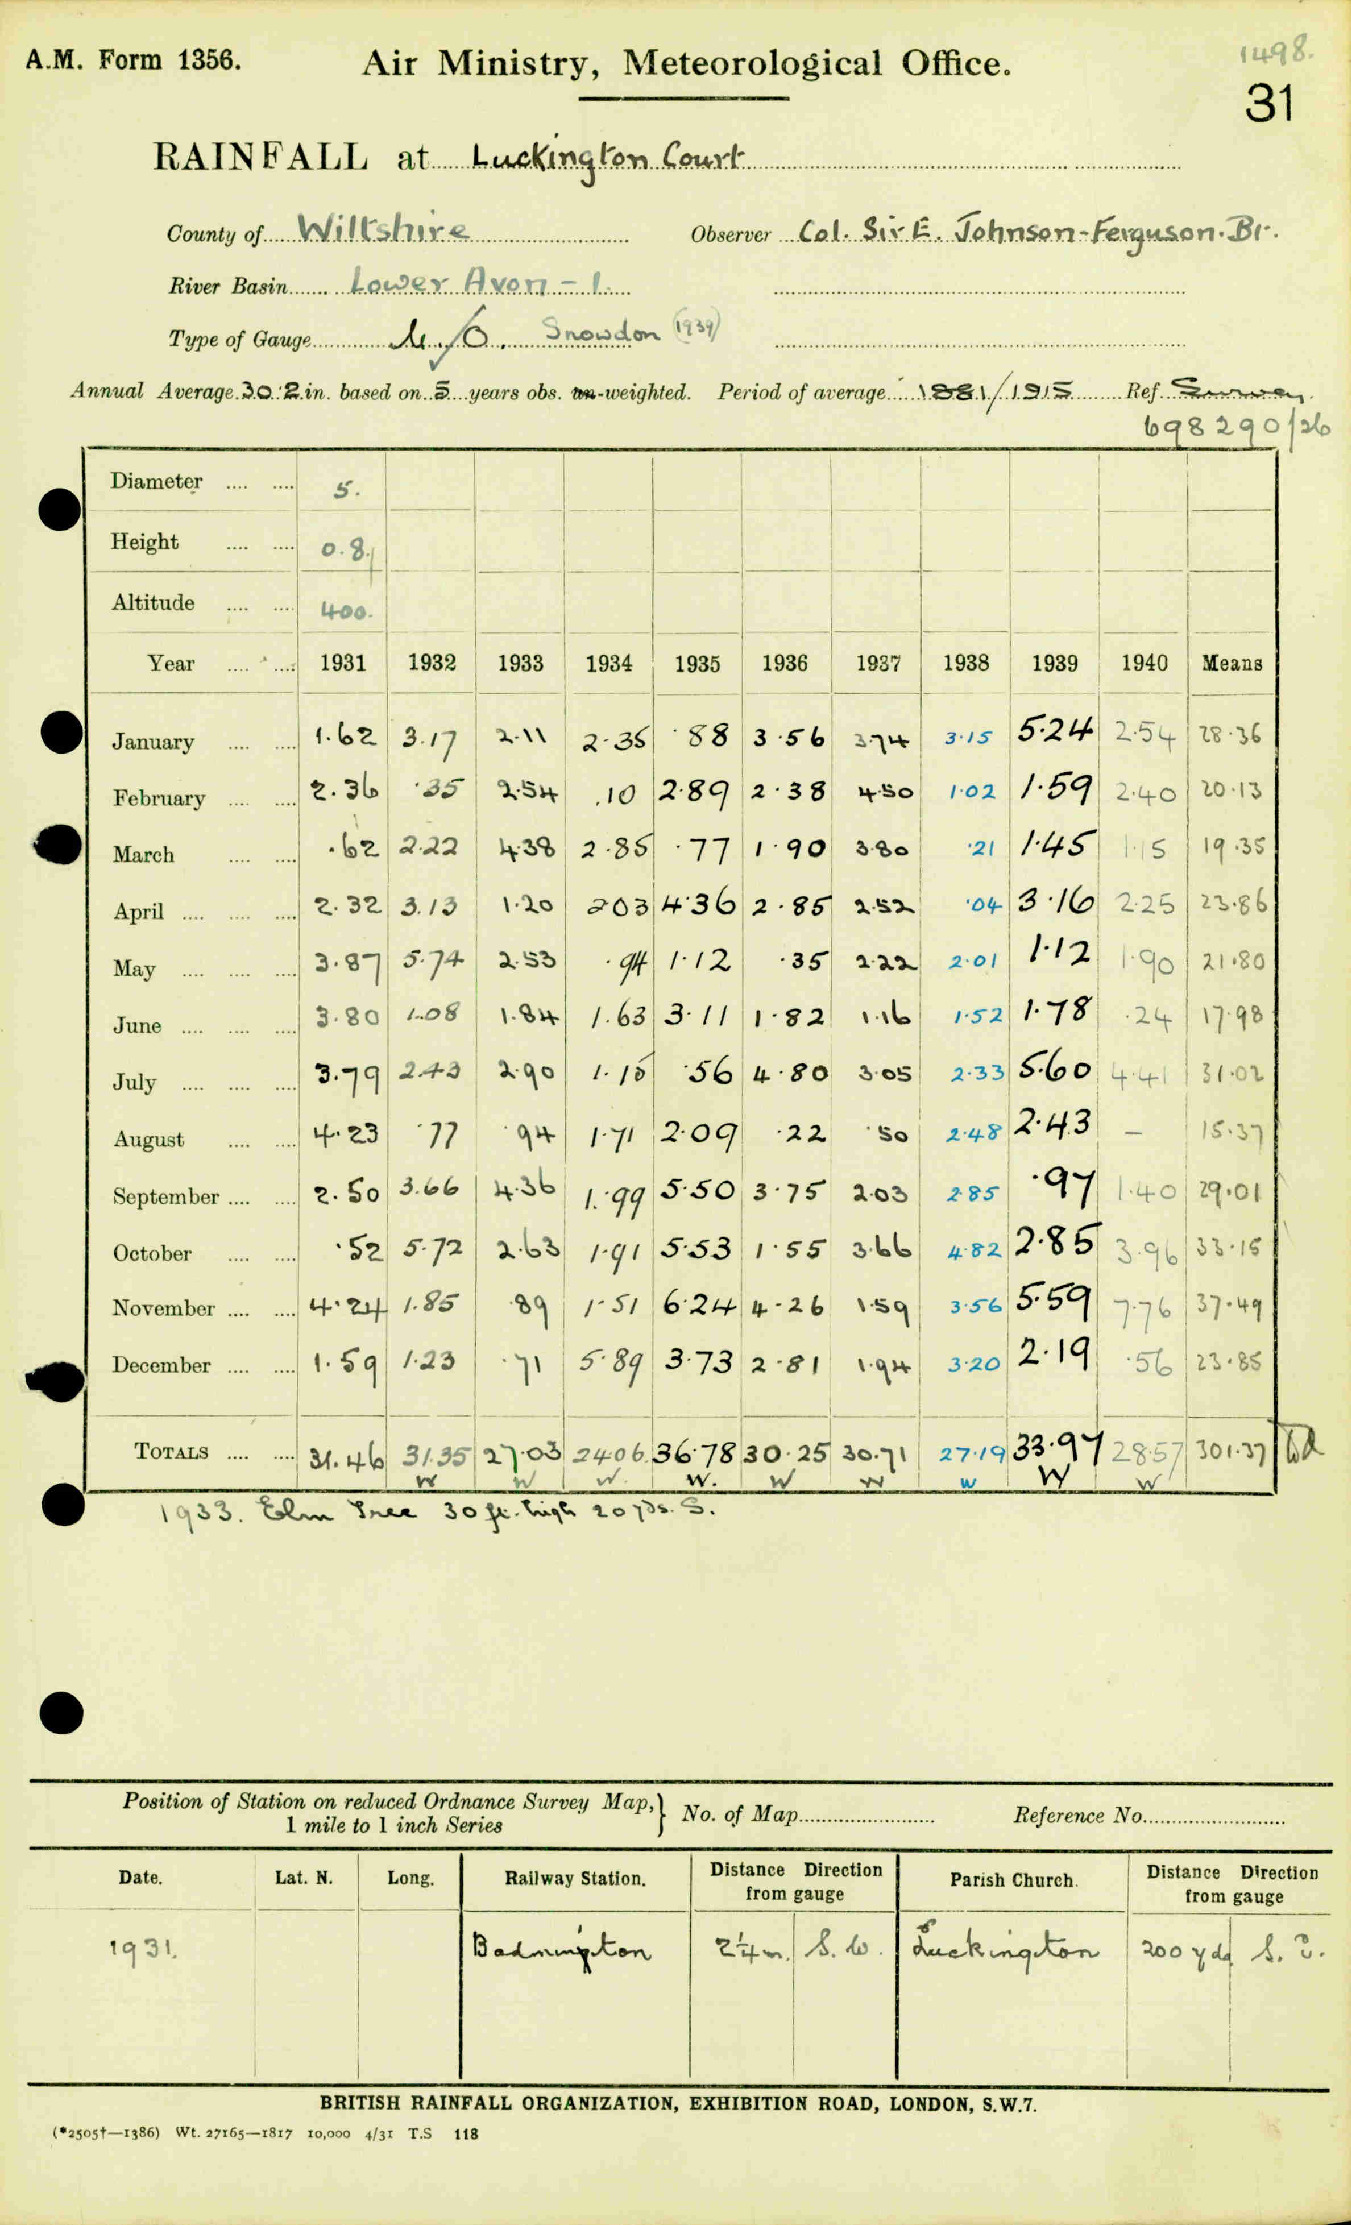 1498.
A.M. Form 1356. Air Ministry, Meteorological Office.
31
RAINFALL at Luckington Court
County of Wiltshire Observer Col. Sir E. Johnson-Ferguson. Bt.
River Basin Lower Avon - 1.
Type of Gauge M.O. Snowdon (1939)
Annual Average 30.2 in. based on 5 years obs. un-weighted. Period of average 1881/1915 Ref. Survey
698290/26
Diameter .... .... 5.
Height .... .... 0.8.
Altitude .... .... 400.
Year .... .... 1931 1932 1933 1934 1935 1936 1937 1938 1939 1940 Means
January .... .... 1.62 3.17 2.11 2.35 .88 3.56 3.74 3.15 5.24 2.54 28.36
February .... .... 2.36 .35 2.54 .10 2.89 2.38 4.50 1.02 1.59 2.40 20.13
March .... .... .62 2.22 4.38 2.85 .77 1.90 3.80 .21 1.45 1.15 19.35
April .... .... .... 2.32 3.13 1.20 2.03 4.36 2.85 2.52 .04 3.16 2.25 23.86
May .... .... .... 3.87 5.74 2.53 .94 1.12 .35 2.22 2.01 1.12 1.90 21.80
June .... .... .... 3.80 1.08 1.84 1.63 3.11 1.82 1.16 1.52 1.78 .24 17.98
July .... .... .... 3.79 2.43 2.90 1.15 .56 4.80 3.05 2.33 5.60 4.41 31.02
August .... .... 4.23 .77 .94 1.71 2.09 .22 .50 2.48 2.43 – 15.37
September .... .... 2.50 3.66 4.36 1.99 5.50 3.75 2.03 2.85 .97 1.40 29.01
October .... .... .52 5.72 2.63 1.91 5.53 1.55 3.66 4.82 2.85 3.96 33.15
November .... .... 4.24 1.85 .89 1.51 6.24 4.26 1.59 3.56 5.59 7.76 37.49
December .... .... 1.59 1.23 .71 5.89 3.73 2.81 1.94 3.20 2.19 .56 23.85
TOTALS .... .... 31.46 31.35 27.03 24.06 36.78 30.25 30.71 27.19 33.97 28.57 301.37
W W W. W. W W W W W
1933. Elm Tree 30 ft. high 20 yds. S.
Position of Station on reduced Ordnance Survey Map,} No. of Map Reference No.
1 mile to 1 inch Series
Date. Lat. N. Long. Railway Station. Distance Direction from gauge Parish Church. Distance Direction from gauge
1931. Badmington 2¼ m. S.W. Luckington 200 yds S.
BRITISH RAINFALL ORGANIZATION, EXHIBITION ROAD, LONDON, S.W.7.
(*2505†—1386) Wt. 27165—1817 10,000 4/31 T.S 118